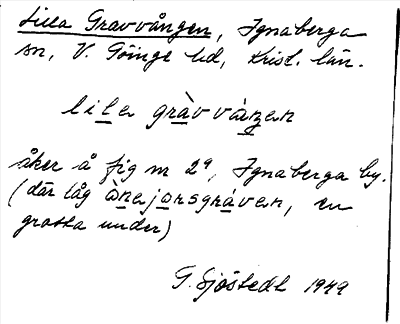 Lilla Gravvången, Ignaberga
sn, V. Göinge hd, Krist. län.
lila gràvváŋen
åker å fig nr 2ª, Ignaberga by.
(där låg ànejorsgráven, en
grotta under)
G. Sjöstedt 1949